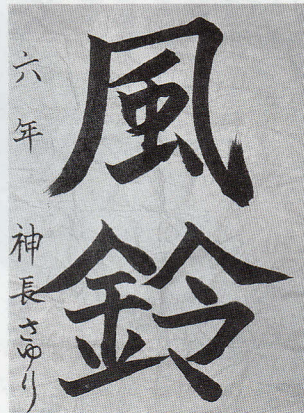 風鈴
六年 神長さゆり